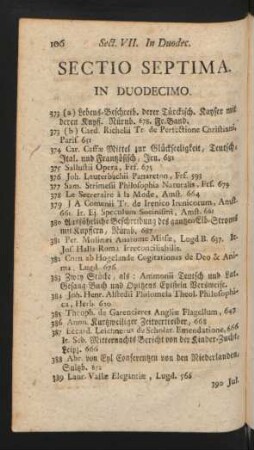 106 Sect. VII. In Duodec.
SECTIO SEPTIMA.
IN DUODECIMO.
373 (a) Lebens-Beschreib. derer Türckisch. Kayser mit
deren Kupff. Nürnb. 678. Fr. Band,
373 (b) Card. Richelii Tr. de Perfectione Christiani
Paris. 651
374 Car. Caffæ Mittel zur Glückseeligkeit, Teutsch-
Ital. und Frantzösisch. Jen. 691
375 Sallustii Opera, Frf. 675
376 Joh. Lauterbachii Pancreton, Frf. 593
377 Sam. Strimesii Philosophia Naturalis, Frf. 679
378 Le Secretaire à la Mode, Amst. 664
379 J A Comenii Tr. de Irenico Irenicorum, Amst.
661. It. Ej. Speculum Socinismi, Amst. 661
380 Ausführliche Beschreibung des gantzen Elb-Stroms
mit Kupffern, Nürnb. 687
381 Pet. Molinæi Anatome Missæ, Lugd B. 637. It.
Jos. Halls Roma Irreconciliabilis.
382 Corn ab Hogelande Cogitationes de Deo & Ani-
ma, Lugd. 676
383 Zwey Stücke, als: Ammonii Teutsch und Lat-
Gesang-Buch und Opitzens Episteln Versweise.
384 Joh. Henr. Alstedii Philomela Theol. Philosophi-
ca, Herb. 620
385 Theoph. de Garencieres Angliæ Flagellum, 647
386 Anno. Kurtzweiliger Zeitvertreiber, 668
387 Eccard. Leichneri de Scholar. Emendatione, 666
It. Sch. Mitternachts Bericht von der Kinder-Zucht
Leipz. 666
388 Abr. von Eyl Conferentzen von den Niederlanden,
Sultzb. 671
389 Laur. Vallæ Elegantiæ, Lugd. 566
390 Jul.